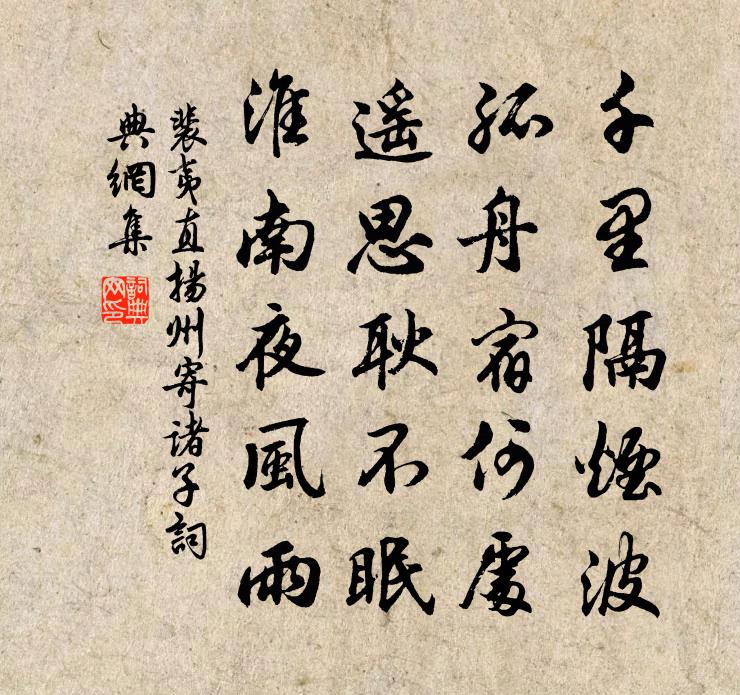 千里隔煙波
孤舟宿何處
遥思耿不眠
淮南夜風雨
裴夷直揚州寄諸子詞
典網集
詞典
网印